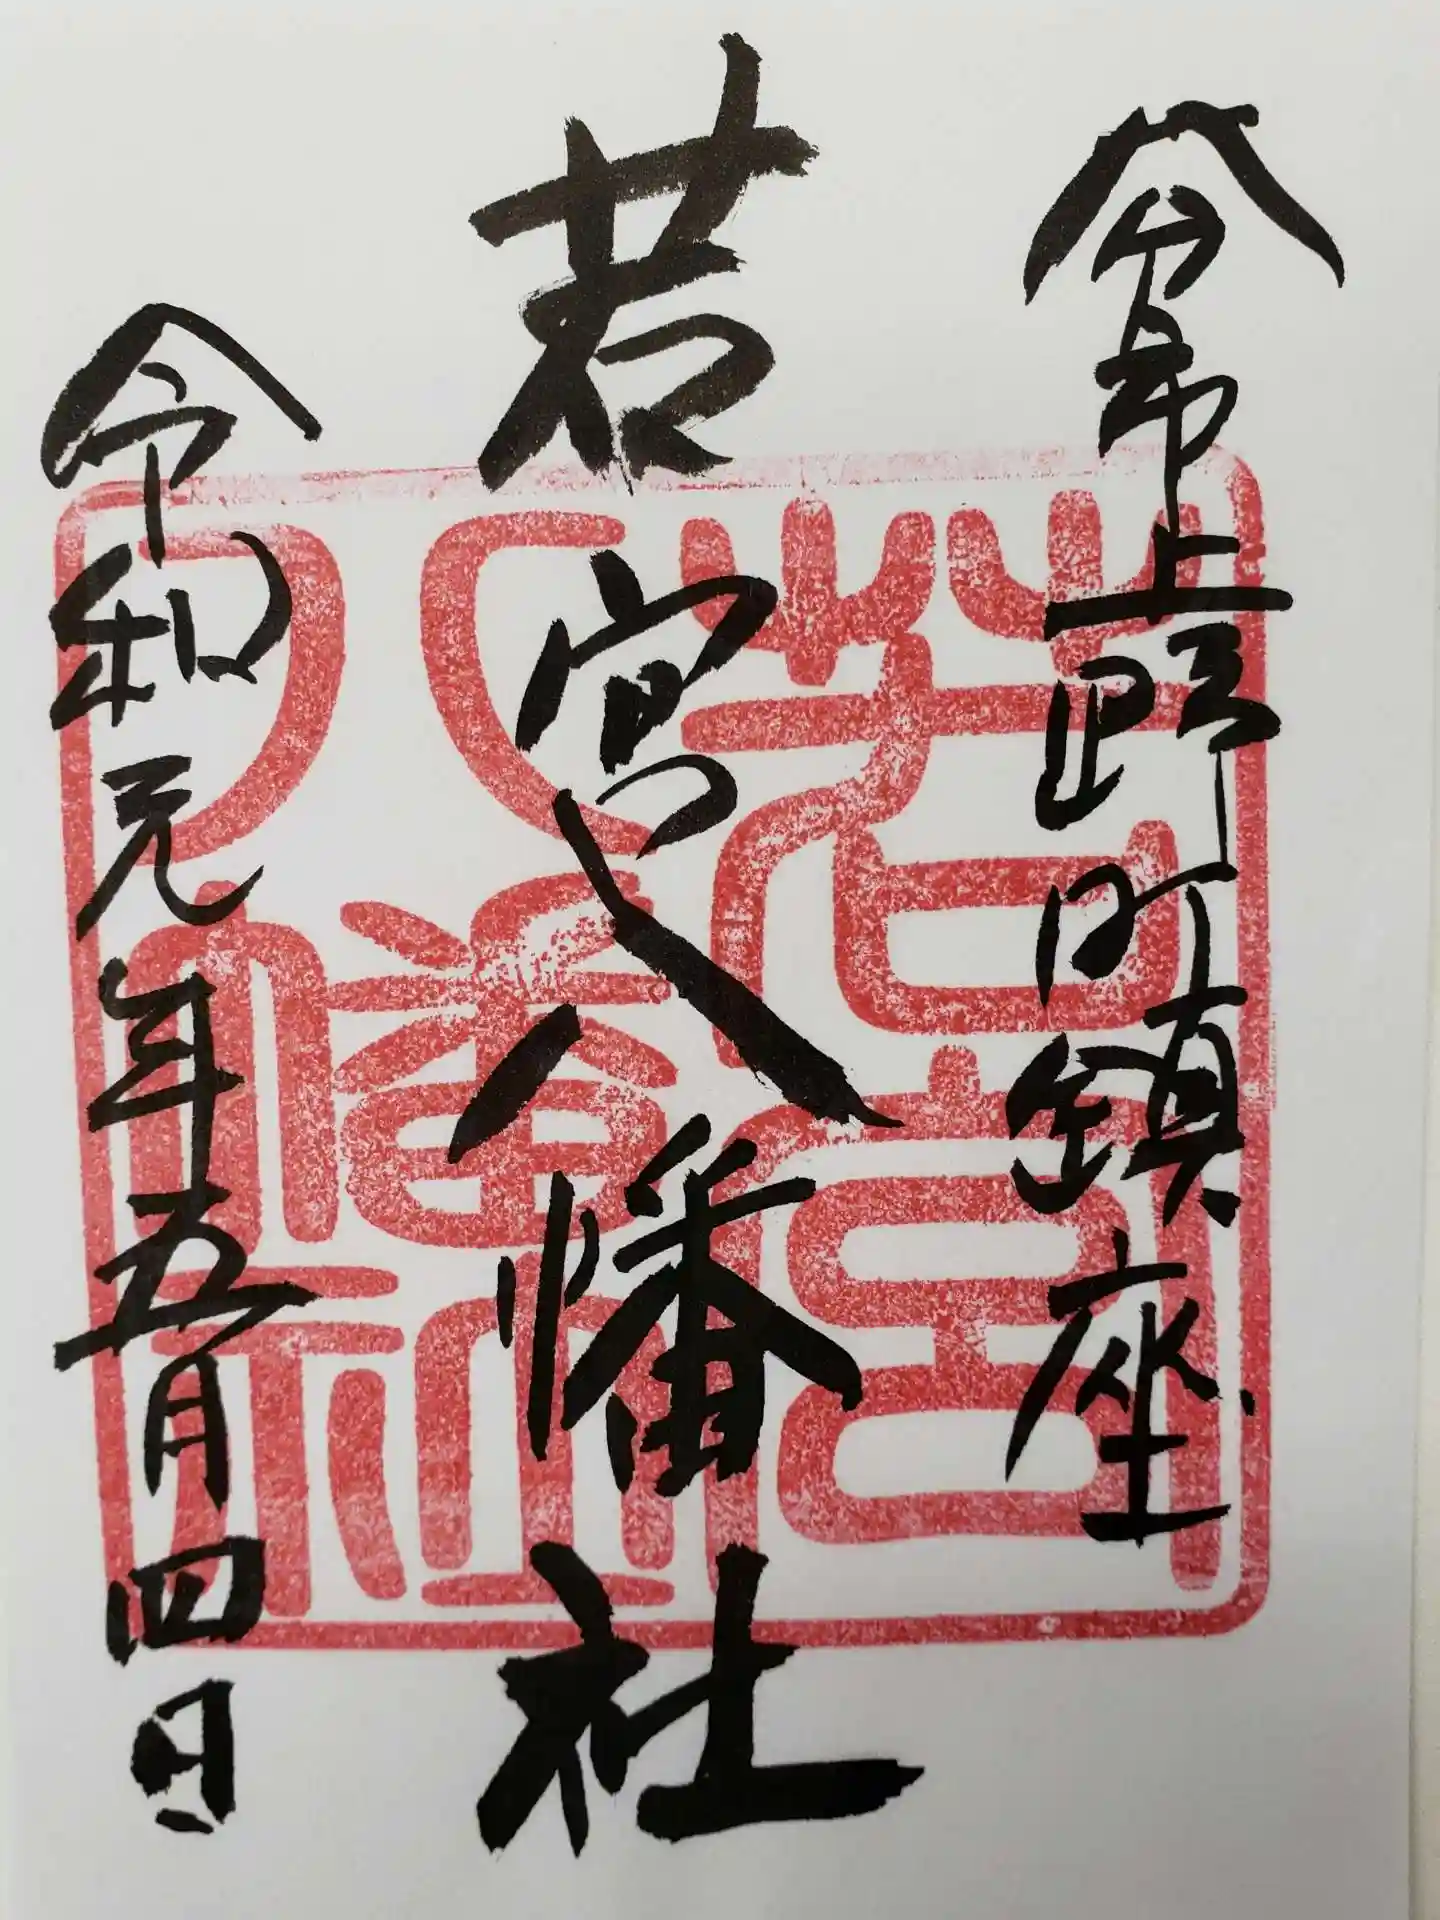 大分市上野町鎮座
若宮八幡社
令和元年五月四日
若宮
八幡社